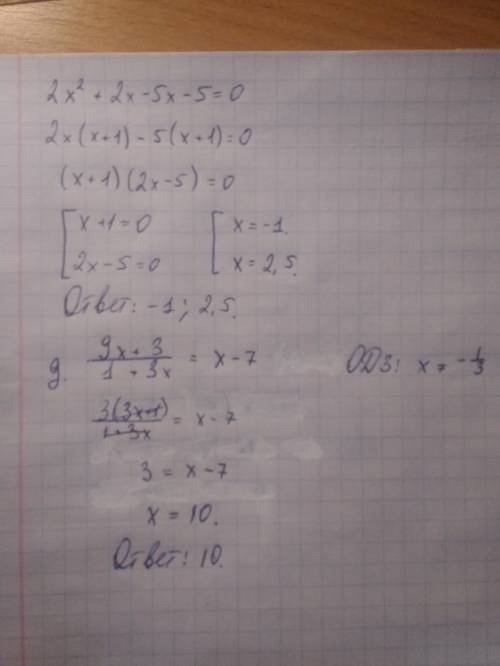 2x² + 2x - 5x - 5 = 0
2x(x+1) - 5(x+1) = 0
(x+1)(2x-5) = 0
[ x+1 = 0 [ x = -1.
[ 2x-5 = 0 [ x = 2,5.
Ответ: -1; 2,5.
9. (9x+3)/(1+3x) = x-7 ОДЗ: x ≠ -1/3
3(3x+1)/(1+3x) = x-7
3 = x-7
x = 10.
Ответ: 10.